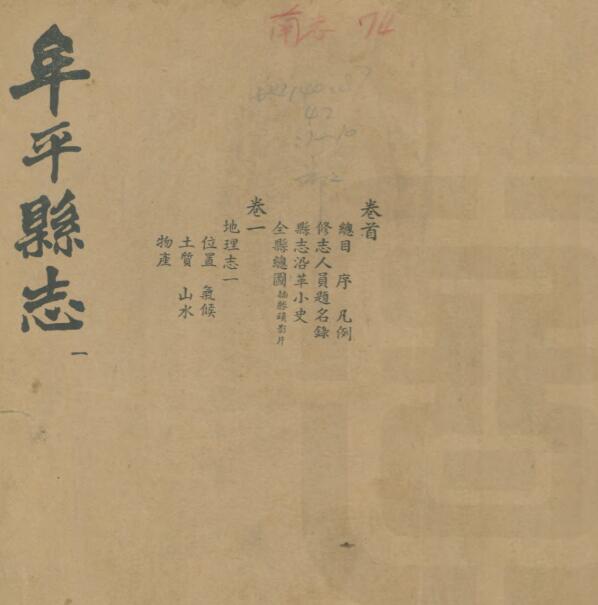 牟平縣志
一
南志 74
42
卷首
總目 序 凡例
修志人員題名錄
縣志沿革小史
全縣總圖
卷一
地理志一
位置 氣候
土質 山水
物產